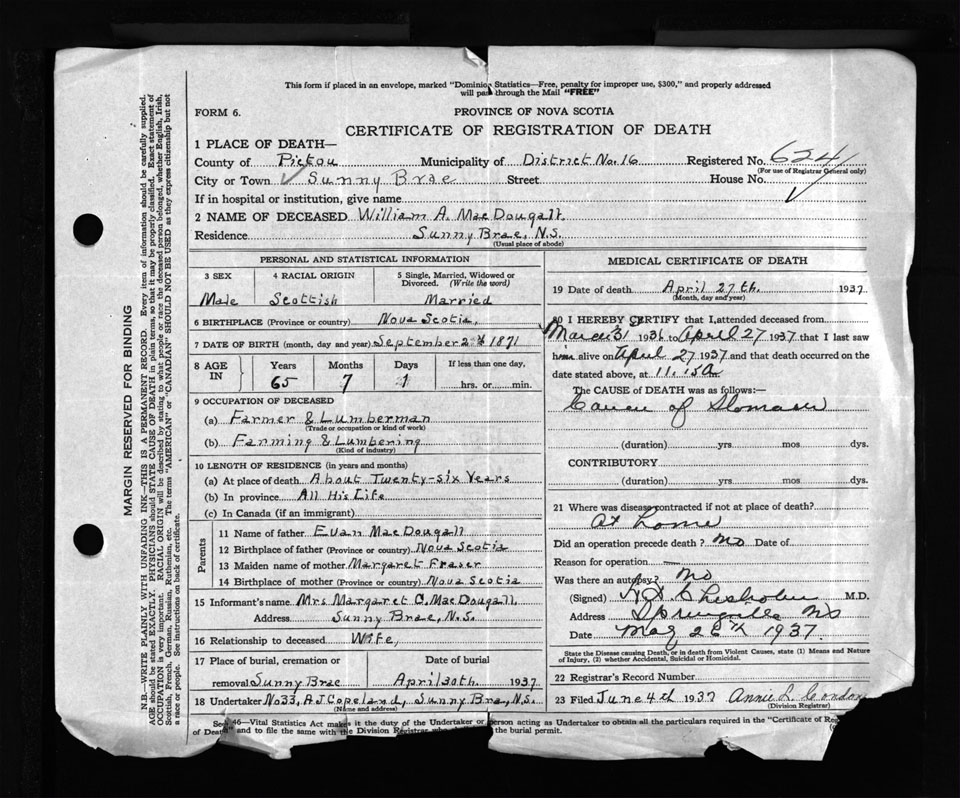 This form if placed in an envelope, marked "Dominion Statistics—Free, penalty for improper use, $300," and properly addressed
will pass through the Mail "FREE"
FORM 6.
PROVINCE OF NOVA SCOTIA
CERTIFICATE OF REGISTRATION OF DEATH
1 PLACE OF DEATH—
County of Pictou Municipality of District No. 16 Registered No. 624
(For use of Registrar General only)
City or Town Sunny Brae Street House No.
If in hospital or institution, give name
2 NAME OF DECEASED William A. MacDougall.
Residence Sunny Brae, N.S.
(Usual place of abode)
PERSONAL AND STATISTICAL INFORMATION
3 SEX
Male
4 RACIAL ORIGIN
Scottish
5 Single, Married, Widowed or
Divorced. (Write the word)
Married
6 BIRTHPLACE (Province or country) Nova Scotia,
7 DATE OF BIRTH (month, day and year) September 1871
8 AGE IN
Years
65
Months
7
Days
If less than one day,
hrs. or min.
9 OCCUPATION OF DECEASED
(a) Farmer & Lumberman
(Trade or occupation or kind of work)
(b) Farming & Lumbering
(Kind of industry)
10 LENGTH OF RESIDENCE (in years and months)
(a) At place of death About Twenty-six Years
(b) In province All His Life
(c) In Canada (if an immigrant)
Parents
11 Name of father Evan MacDougall
12 Birthplace of father (Province or country) Nova Scotia
13 Maiden name of mother Margaret Fraser
14 Birthplace of mother (Province or country) Nova Scotia
15 Informant's name Mrs Margaret C. MacDougall
Address Sunny Brae, N.S.
16 Relationship to deceased Wife,
17 Place of burial, cremation or
removal Sunny Brae
Date of burial
April 30th. 1937
18 Undertaker No 33, A J Copeland, Sunny Brae, N.S.
(Name and address)
MEDICAL CERTIFICATE OF DEATH
19 Date of death April 27th. 1937
(Month, day and year)
20 I HEREBY CERTIFY that I attended deceased from
March 31 1936 to April 27 1937 that I last saw
him alive on April 27 1937 and that death occurred on
date stated above, at 11.15 a
The CAUSE OF DEATH was as follows:—
Cancer of Stomach
(duration) yrs mos dys.
CONTRIBUTORY
(duration) yrs. mos dys.
21 Where was disease contracted if not at place of death?
At home
Did an operation precede death? No Date of
Reason for operation
Was there an autopsy? No
(Signed) Chisholm M.D.
Address Springville NS
Date May 26th 1937.
State the Disease causing Death, or in death from Violent Causes, state (1) Means and Nature
of Injury, (2) whether Accidental, Suicidal or Homicidal.
22 Registrar's Record Number
23 Filed June 4th 1937 Annie L. Condon
(Division Registrar)
46—Vital Statistics Act makes it the duty of the Undertaker or person acting as Undertaker to obtain all the particulars required in the "Certificate of
of Death" and to file the same with the Division Registrar who the burial permit.
MARGIN RESERVED FOR BINDING
N.B.—WRITE PLAINLY WITH UNFADING INK—THIS IS A PERMANENT RECORD. Every item of information should be carefully supplied.
AGE should be stated EXACTLY. PHYSICIANS should STATE CAUSE OF DEATH in plain terms, so that it may be properly classified. Exact statement of
OCCUPATION is very important. RACIAL ORIGIN will be described by stating to what people or race the deceased person belonged, whether English, Irish,
Scottish, French, German, Russian, Ruthenian, etc. The terms "AMERICAN" or "CANADIAN" SHOULD NOT BE USED as they express citizenship but not
a race or people. See instructions on back of certificate.